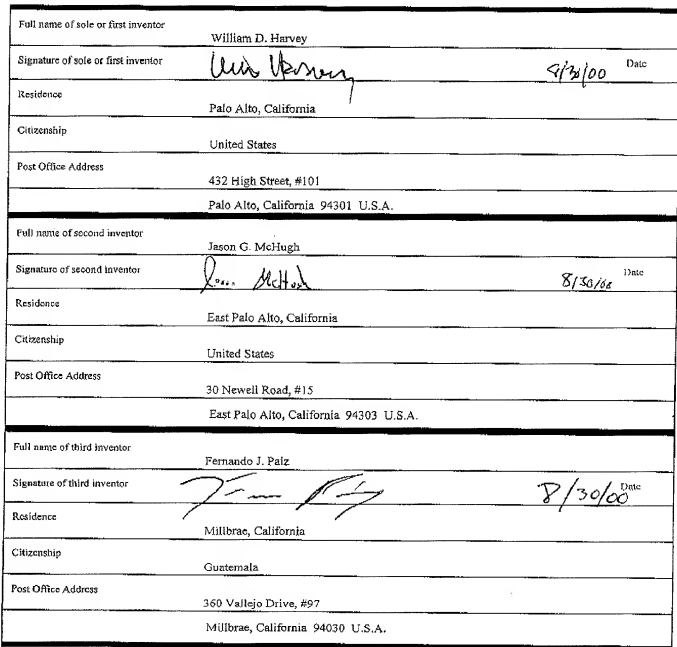 Full name of sole or first inventor
William D. Harvey
Signature of sole or first inventor 8/30/00 Date
Residence
Palo Alto, California
Citizenship
United States
Post Office Address
432 High Street, #101
Palo Alto, California 94301 U.S.A.
Full name of second inventor
Jason G. McHugh
Signature of second inventor Jason McHugh 8/30/00 Date
Residence
East Palo Alto, California
Citizenship
United States
Post Office Address
30 Newell Road, #15
East Palo Alto, California 94303 U.S.A.
Full name of third inventor
Fernando J. Paiz
Signature of third inventor 8/30/00 Date
Residence
Millbrae, California
Citizenship
Guatemala
Post Office Address
360 Vallejo Drive, #97
Millbrae, California 94030 U.S.A.